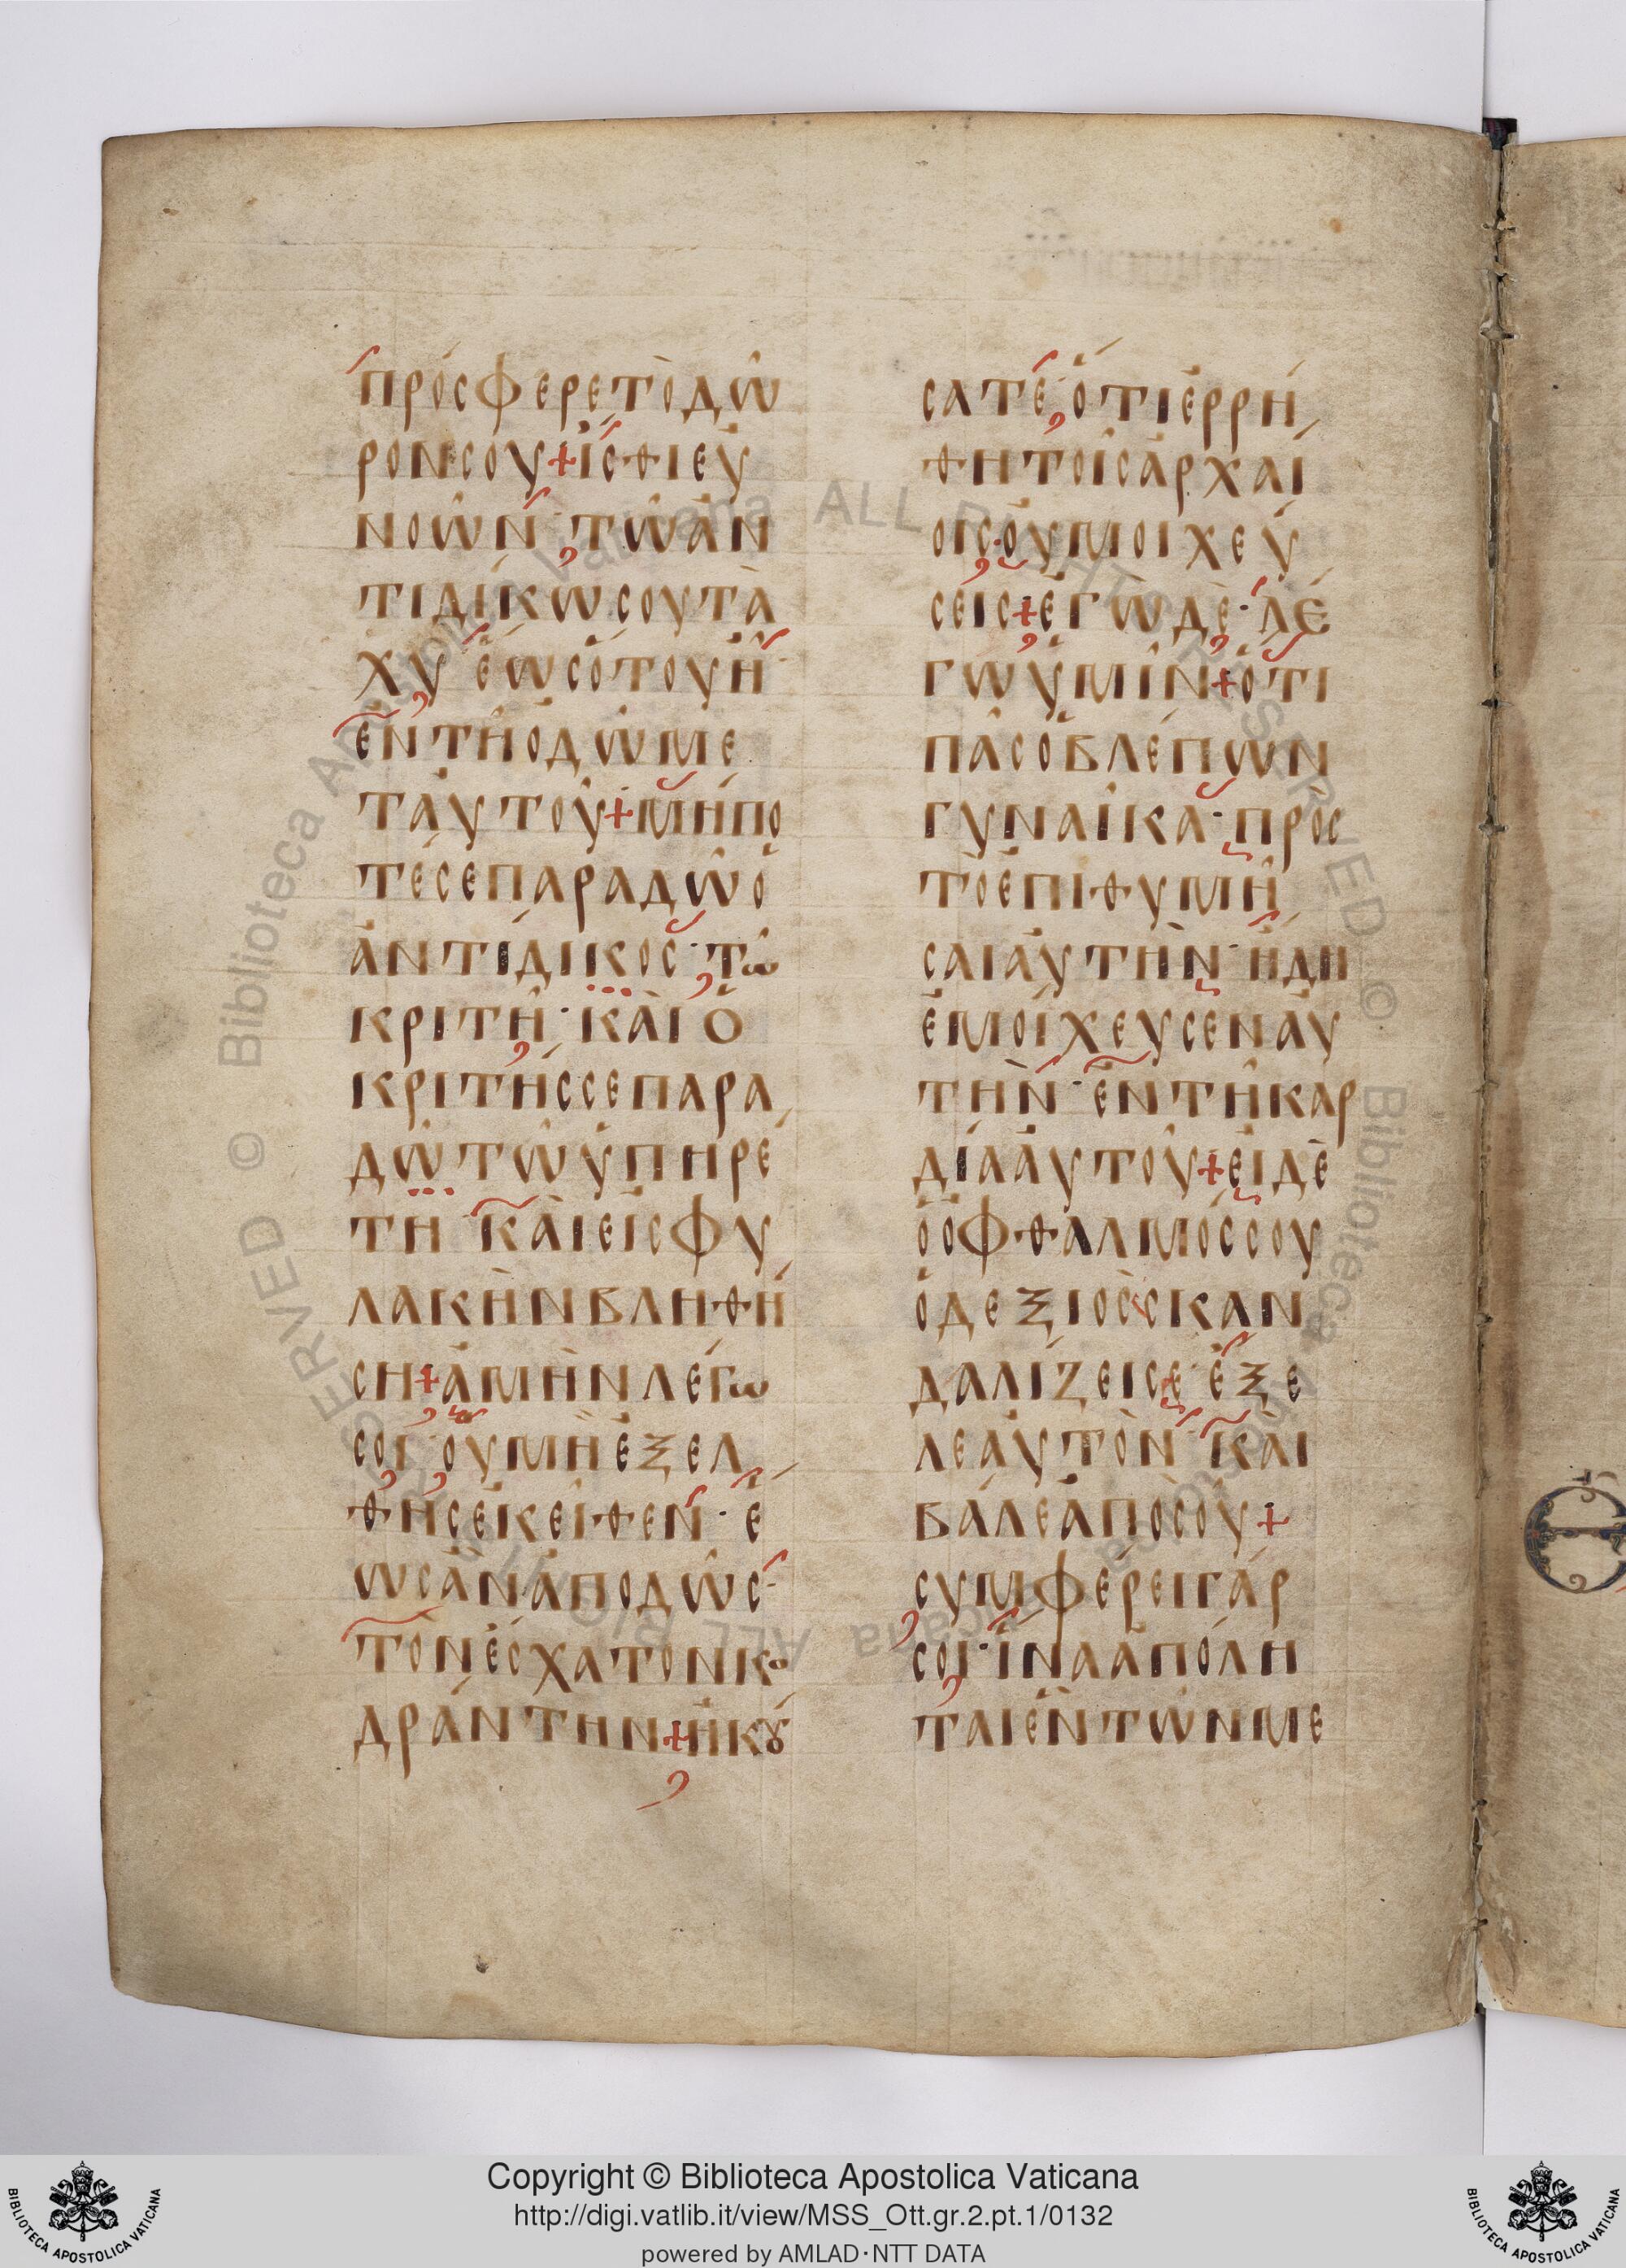 πρόσφερε τὸ δῶ
ρον σου + ἴσθι εὐ
νοῶν · τῶ ἀν
τιδίκω σου τα
χὺ ἕως ὅτου ἦ
ἐν τῆ ὁδῶ με
τ' αὐτοῦ + μήπο
τέ σε παραδῶ ὁ
ἀντίδικος · τῶ
κριτῆ · καὶ ὁ
κριτής σε παρα
δῶ τῶ ὑπηρέ
τη καὶ εἰς φυ
λακὴν βληθή
ση + ἀμὴν λέγω
σοι · οὐ μὴ ἐξέλ
θης ἐκεῖθεν · ἕ
ως ἂν ἀποδῶς ·
τὸν ἔσχατον κο
δράντην + ἠκού
σατε · ὅτι ἐρρή
θη τοῖς ἀρχαί
οις · οὐ μοιχεύ
σεις + ἐγὼ δὲ · λέ
γω ὑμῖν + ὅτι
πᾶς ὁ βλέπων
γυναῖκα · πρὸς
τὸ ἐπιθυμῆ
σαι αὐτὴν · ἤδη
ἐμοίχευσεν αὐ
τὴν · ἐν τῆ καρ
δία αὐτοῦ + εἰ δὲ
ὁ ὀφθαλμός σου
ὁ δεξιὸς σκαν
δαλίζει σε · ἔξε
λε αὐτὸν · καὶ
βάλε ἀπὸ σοῦ +
συμφέρει γάρ
σοι · ἵνα ἀπόλη
ται ἓν τῶν με
Biblioteca Apostolica Vaticana ALL RIGHTS RESERVED ©
Copyright © Biblioteca Apostolica Vaticana
http://digi.vatlib.it/view/MSS_Ott.gr.2.pt.1/0132
powered by AMLAD·NTT DATA
BIBLIOTECA APOSTOLICA VATICANA
BIBLIOTECA APOSTOLICA VATICANA